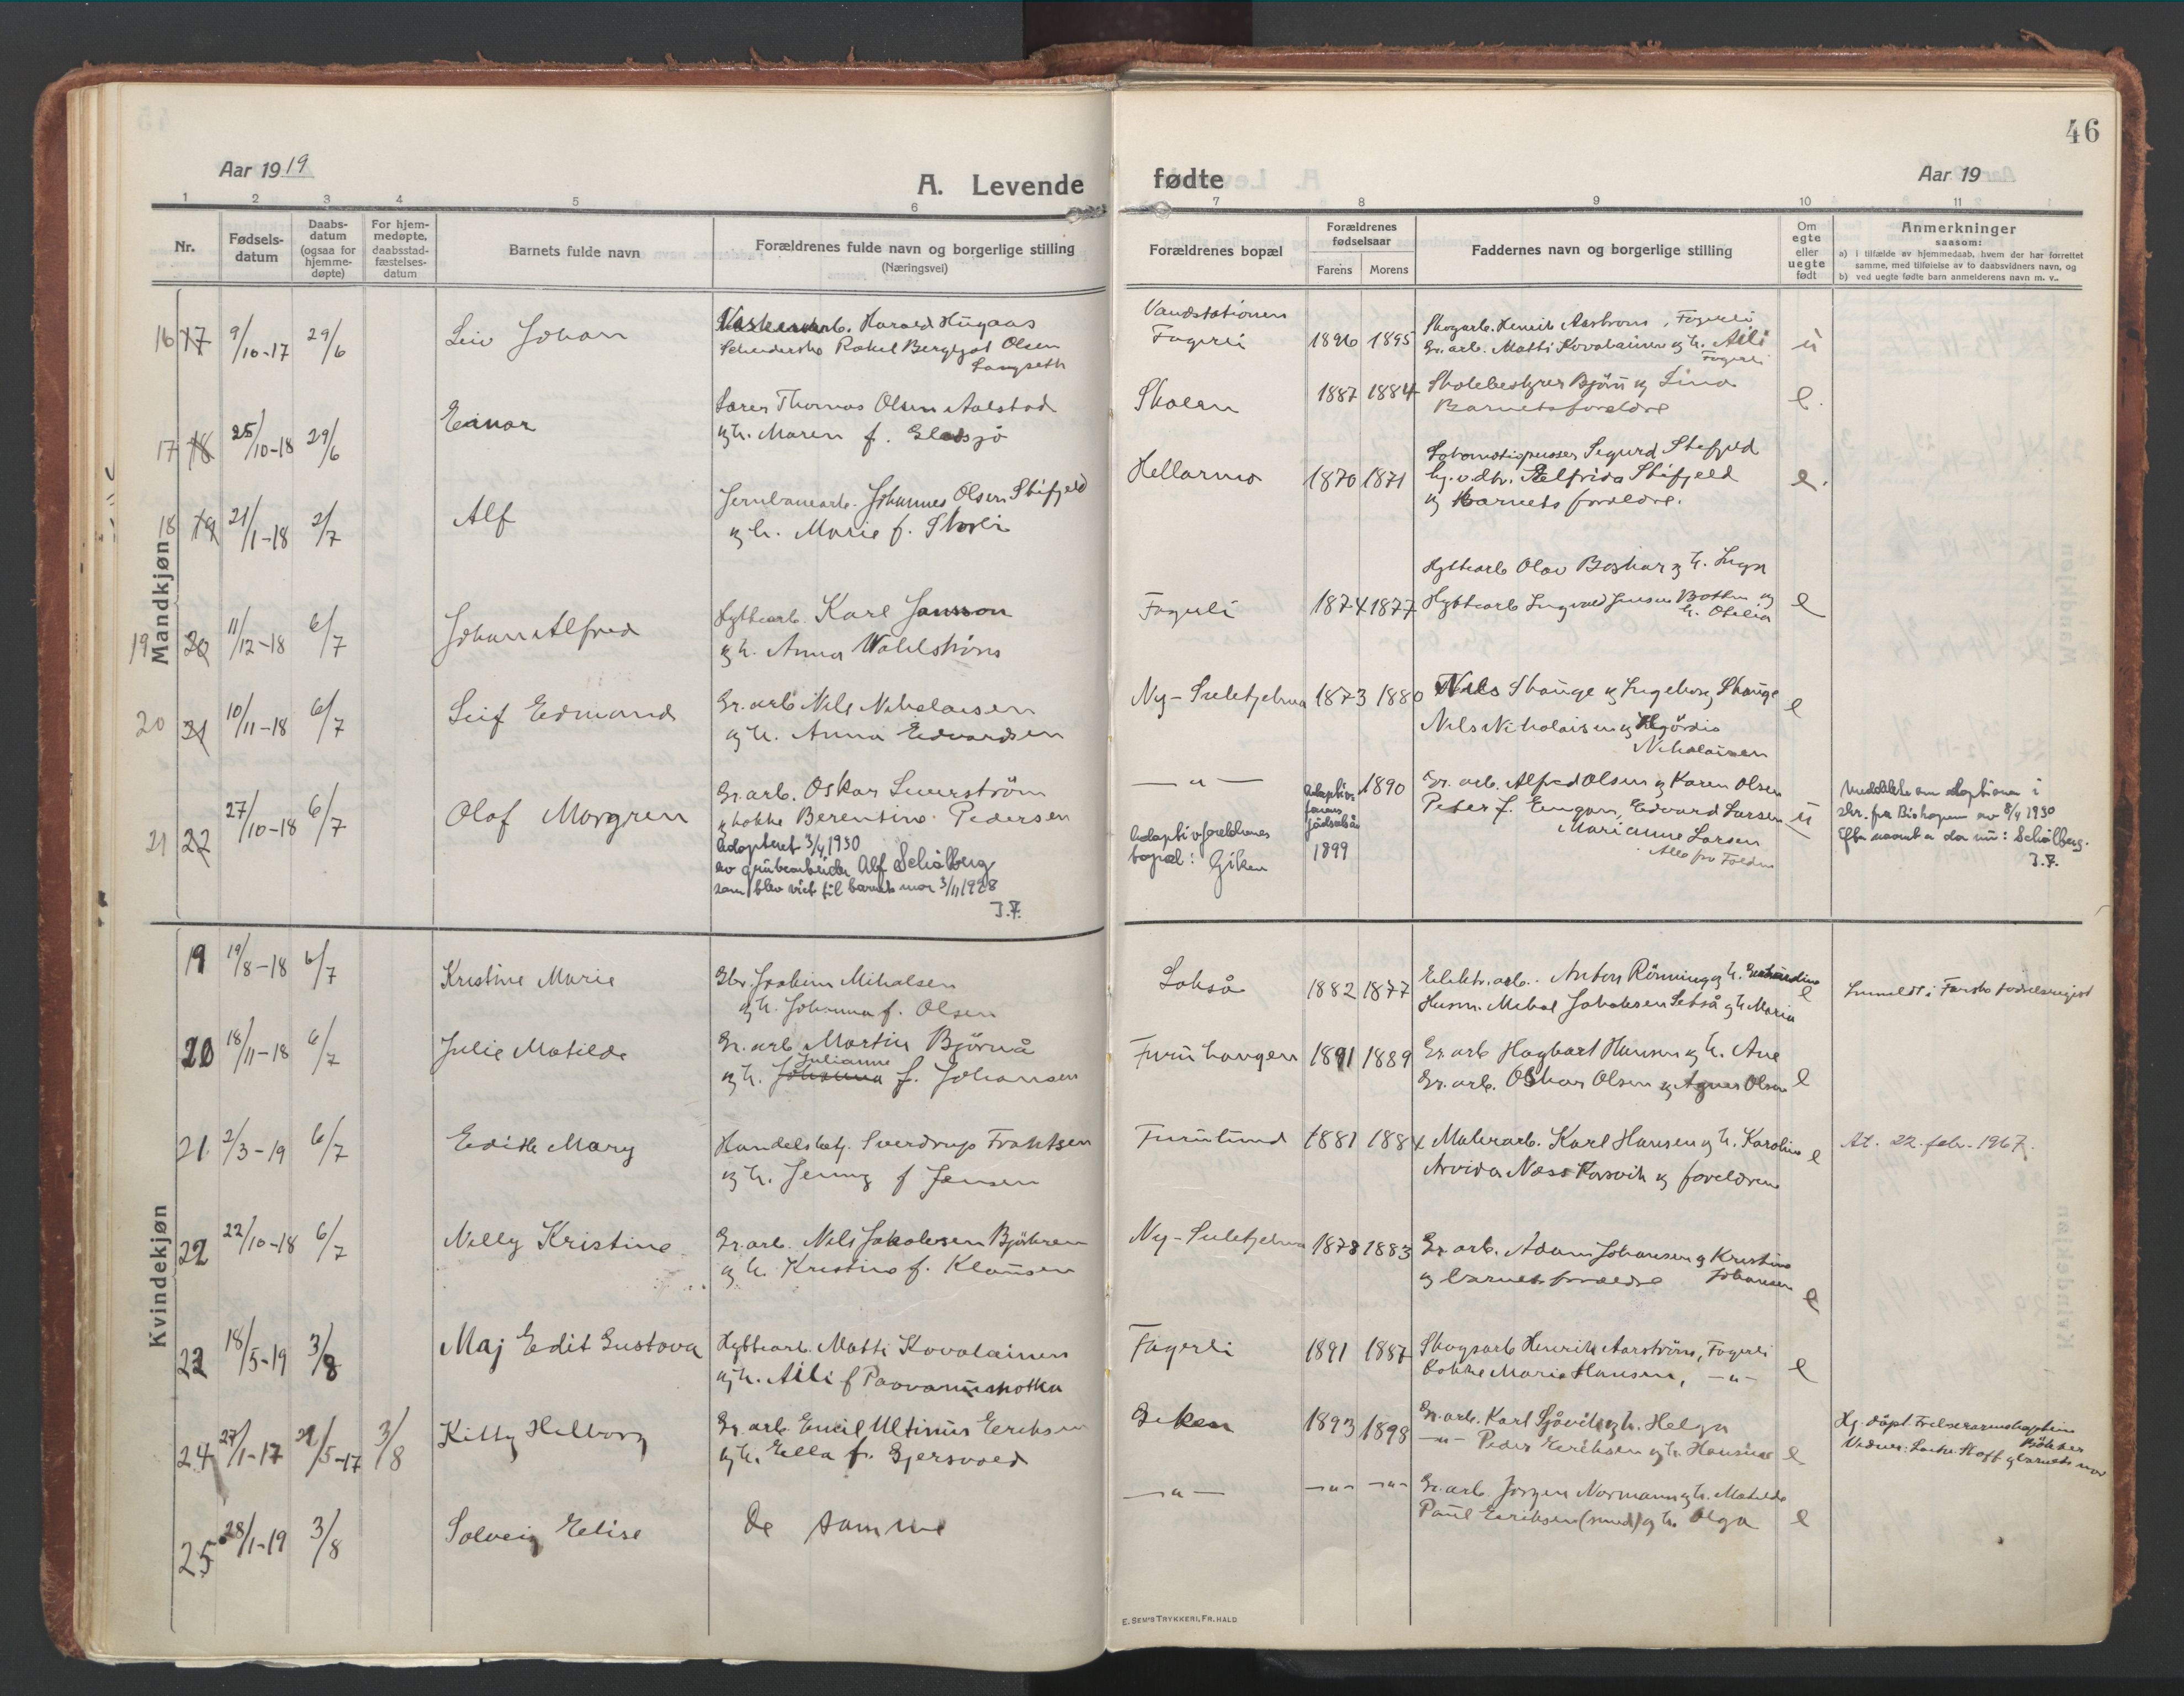 46
Aar 1919
A. Levende
fødte
Aar 19
1 2 3 4 5 6 7 8 9 10 11
Nr.
Fødsels-
datum
Daabs-
datum
(ogsaa for
hjemme-
døpte)
For hjem-
medøpte,
daabsstad-
fæstelses-
datum
Barnets fulde navn
Forældrenes fulde navn og borgerlige stilling
(Næringsvei)
Forældrenes bopæl
Forældrenes
fødselsaar
Farens Morens
Faddernes navn og borgerlige stilling
Om
egte
eller
uegte
født
Anmerkninger
saasom:
a) i tilfælde av hjemmedaab, hvem der har forrettet
samme, med tilføielse av to daabsvidners navn, og
b) ved uegte fødte barn anmelderens navn m. v..
Mandkjøn
16 17 9/10-17 29/6
Leiv Johan
Harald Hugaas
Rakel Bergljot Olsen
Langseth
Vandstationen
Fagerli
1896 1895
Skogarb. Henrik Aastrøm, Fagerli
Gr. arb. Matti Kovalainen og h. Aili
Fagerli
u
17 18 25/10-18 29/6
Einar
Lærer Thomas Olsen Aalstad
og h. Maren f. Gladsjø
Skolen
1887 1884
Skolebestyrer Bjørn og Lina
Barnets foreldre
e
18 19 21/1-18 2/7
Alf
Jernbanearb. Johannes Olsen Skifjeld
og h. Marie f. Skorli
Hellarmo
1870 1871
Sigurd Skifjeld
Elfrida Skifjeld
og Barnets foreldre.
e
19 20 11/12-18 6/7
Johan Alfred
Hyttearb. Karl Jansson
og h. Anna Wahlstrøm
Fagerli
1874 1877
Hyttearb Olav Boskar og h. Inga
Hyttearb Ingvald Jensen Botten og
h. Otelia
e
20 21 10/11-18 6/7
Leif Edmund
Gr. arb Nils Nikolaisen
og h. Anna Edvardsen
Ny-Sulitjelma
1873 1880
Nils Skauge og Ingeborg Skauge
Nils Nikolaisen og Hjørdis
Nikolaisen
e
21 22 27/10-18 6/7
Olaf Margren
Gr. arb. Oskar Luurström
og kokke Berentine Pedersen
Adopteret 3/4 1930
av grubearbeider Alf Schälberg
som blev viet til barnets mor 3/11 1928
J.F.
— " —
Adoptivforeldrenes
bopæl: Giken
Adoptiv-
farens
fødselsår
1899
1890
Gr. arb. Alfred Olsen og Karen Olsen
Peter J. Engan, Edvard Larsen
Marianne Larsen
Alle fra Folden
u
Meddelelse om adoptionen i
skr. fra Biskopen av 8/4 1930
Efternavnet er da nu: Schålberg.
J.F.
Kvindekjøn
19 19/8-18 6/7
Kristine Marie
Gbr. Joakim Mikalsen
og h. Johanna f. Olsen
Lakså
1882 1877
Elektr. arb. Anton Rönning og h.
Husm. Mikal Jakobsen Setså og h Maria
e
Innmeldt i Fauske fødselsregist
20 18/11-18 6/7
Julie Matilde
Gr. arb Martin Björnå
Julianne
og h. Johanna f. Johansen
Furuhaugen
1891 1889
Gr. arb Hagbart Hansen og h. Ane
Gr. arb. Oskar Olsen og Agnes Olsen
e
21. 2/3-19 6/7
Edith Mary
Handelsbetj. Sverdrup Frantsen
og h. Jenny f Jensen
Furulund
1881 1884
Malerarb. Karl Hansen og h. Karoline
Arvida Næss Korsvik og foreldrene
e
At. 22. feb. 1967.
22 22/10-18 6/7
Nelly Kristine
Gr. arb. Nils Jakobsen Björkmo
og h. Kristine f. Klausen
Ny-Sulitjelma
1878 1883
Gr. arb. Adam Johansen og Kristine
og barnets foreldre Johansen
e
22 18/5-19 3/8
Maj Edit Gustava
Hyttearb. Matti Kovalainen
og h. Aili f
Fagerli
1891 1887
Skogsarb Henrik Aarström, Fagerli
Kokke Marie Hansen, -"-
e
24 27/1-17 29/5-17 3/8
Kitty Helborg
Gr. arb. Emil Ultinius Eeriksen
og h. Ella f. Gjersvold
Giken
1893 1898
Gr. arb. Karl Sjåvik og h. Helga
-"- Peder Eeriksen og h. Hansine
e
Hj. døpt. Frelsesarmekaptein
Bökker
og barnets mor
25 28/1-19 3/8
Solveig Elise
De samme
— " —
-"- -"-
Gr. arb. Jørgen Normann og h. Matilde
Paul Eeriksen (smed) og h. Olga
e
E. SEM'S TRYKKERI, FR. HALD